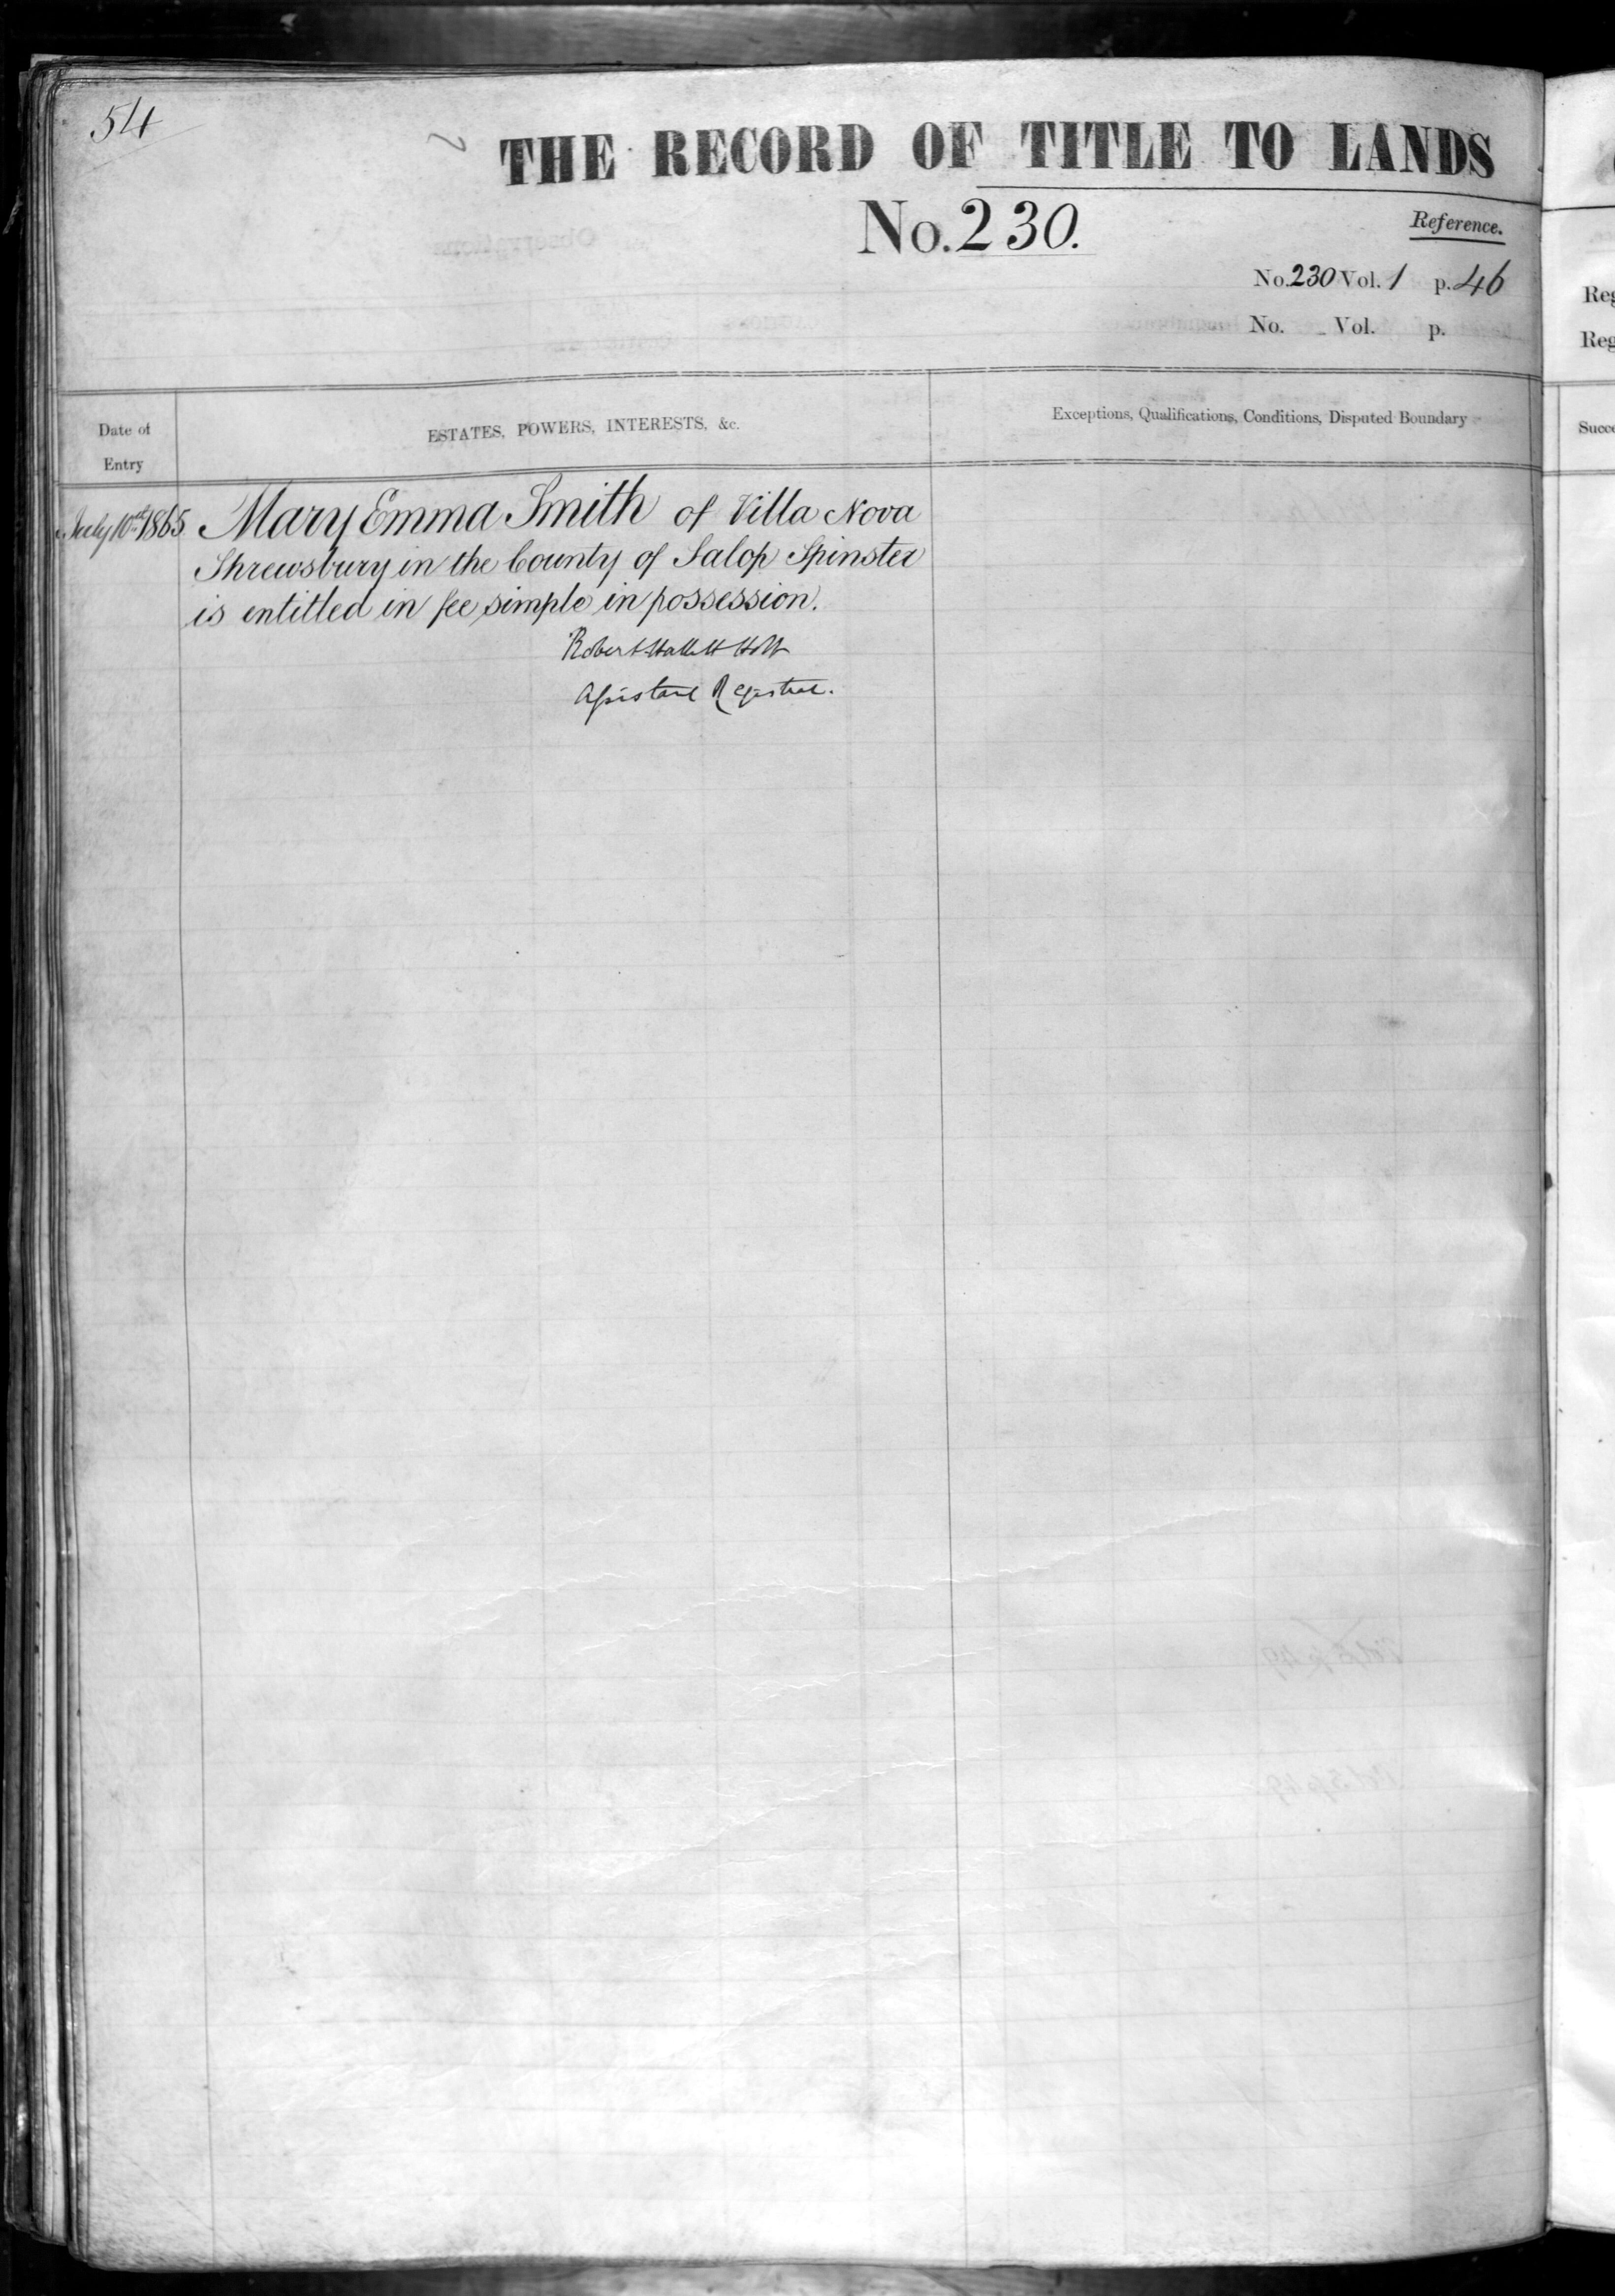 54
THE RECORD OF TITLE TO LANDS
No. 230.
Reference.
No. 230 Vol. 1 p. 46
No. Vol. p.
Reg
Reg
Date of
Entry
ESTATES, POWERS, INTERESTS, &c.
Exceptions, Qualifications, Conditions, Disputed Boundary
Succe
July 10th 1865 Mary Emma Smith of Villa Nova
Shrewsbury in the County of Salop Spinster
is entitled in fee simple in possession.
Robert Hallett Holt
Assistant Registrar.